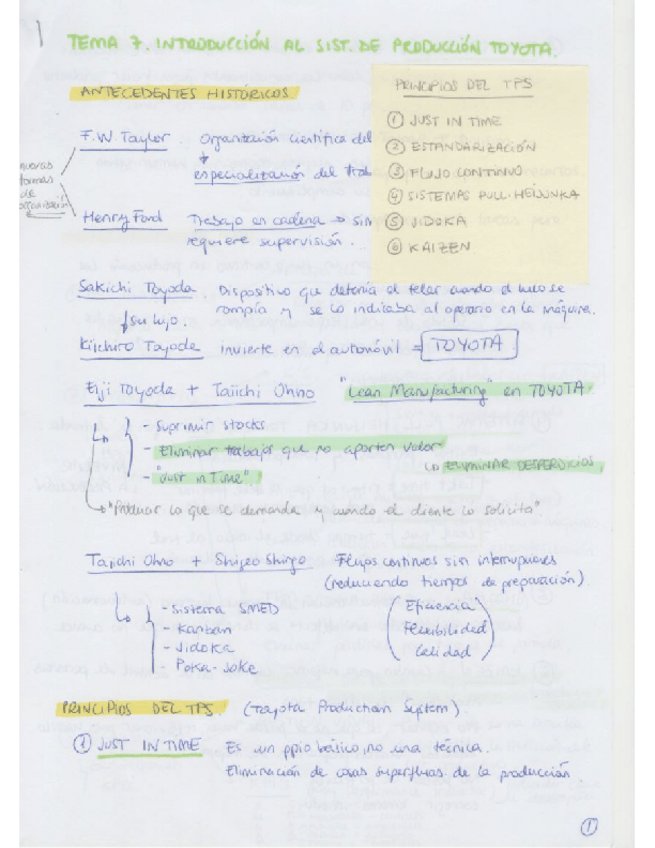 1
TEMA 7. INTRODUCCIÓN AL SIST. DE PRODUCCIÓN TOYOTA.
ANTECEDENTES HISTÓRICOS
PRINCIPIOS DEL TPS
① JUST IN TIME
② ESTANDARIZACIÓN
③ FLUJO CONTINUO
④ SISTEMAS PULL-HEIJUNKA
⑤ JIDOKA
⑥ KAIZEN
F.W. Taylor. Organización científica del
especialización del
nuevas
formas
de
organización
Henry Ford Trabajo en cadena → sin
requiere supervisión.
Sakichi Toyoda. Dispositivo que detenía el telar cuando el hilo se
rompía y se lo indicaba al operario en la máquina.
↓ su hijo.
Kiichiro Toyoda invierte en el automóvil = TOYOTA
Eiji Toyoda + Taiichi Ohno "Lean Manufacturing" en TOYOTA
- Suprimir stocks
- Eliminar trabajos que no aporten valor
↳ ELIMINAR DESPERDICIOS
- "Just in Time".
"Producir lo que se demanda y cuando el cliente lo solicita".
Taiichi Ohno + Shigeo Shingo Flujos continuos sin interrupciones
(reduciendo tiempos de preparación).
- Sistema SMED
- Kanban
- Jidoka
- Poka-Joke
Eficiencia
Flexibilidad
Calidad
PRINCIPIOS DEL TPS. (Toyota Production System).
① JUST IN TIME Es un ppio básico, no una técnica.
Eliminación de cosas superfluas de la producción
①